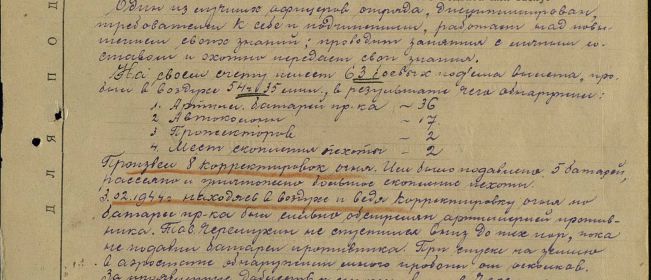 Один из лучших офицеров отряда, дисциплинирован,
требователен к себе и подчиненным, работает над повы-
шением своих знаний, проводит занятия с личным со-
ставом и охотно передает свои знания.
На своем счету имеет 63 боевых под'ема винта, про-
был в воздухе 54 ч. 35 мин., в результате чего обнаружил:
1. Артил. батарей пр-ка – 36
2. Автоколонн – 17
3 Прожекторов – 2
4. Мест скопления пехоты – 2
Произвел 8 корректировок огня. Им было подавлено 5 батарей,
рассеяно и уничтожено боевое скопление пехоты.
3.02.1944г. находясь в воздухе и ведя корректировку огня по
батарее пр-ка был сильно обстрелян артиллерией против-
ника. Тов. не спустился вниз до тех пор, пока
не подавил батареи противника. При спуске на землю
в аэростате обнаружили много пробоин от осколков.
За
ДЛЯ ПОД